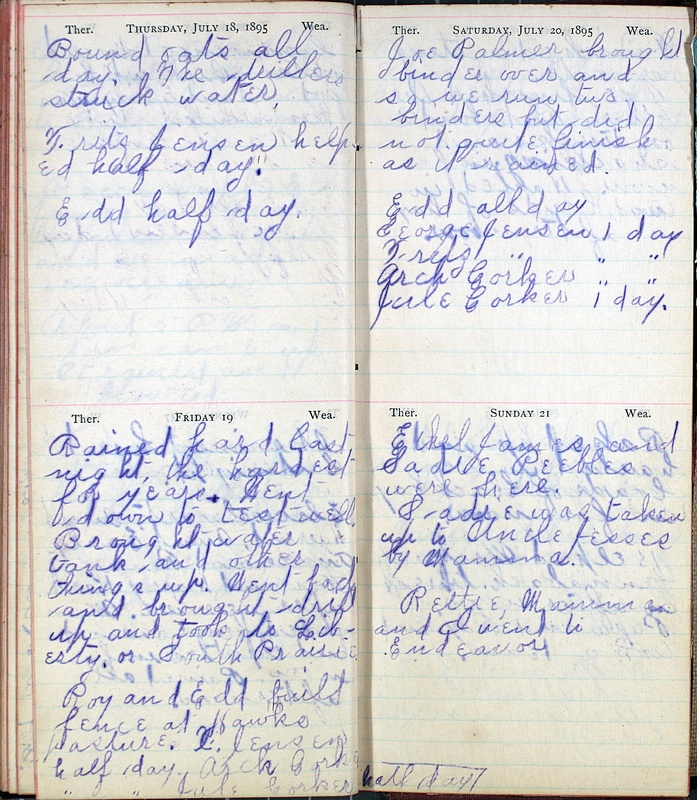 Ther. THURSDAY, JULY 18, 1895 Wea.
Bound oats all
day. The drillers
struck water.
Frits Jensen help
ed half day.
Edd half day.
Ther. FRIDAY 19 Wea.
Rained hard last
night, the hardest
for years. Went
down to test well.
Brought water
tank and other
things up. Went back
and brought drill
up and took to Lib-
erty or South Prairie.
Roy and Edd built
fence at Hawks
pasture. Jensen
half day. Arch Corke
" " Jule Corker
Ther. SATURDAY, JULY 20, 1895 Wea.
Joe Palmer brought
binder over and
so we run two
binders but did
not quite finish
as it rained.
Edd all day
George Jensen 1 day
Frits " "
Arch Corker " "
Jule Corker 1 day.
Ther. SUNDAY 21 Wea.
Ethel James and
Sadie Peebles
were here.
Sadie was taken
up to Uncle Jesses
by Mamma.
Mamma
and I went to
Endeavor
half day